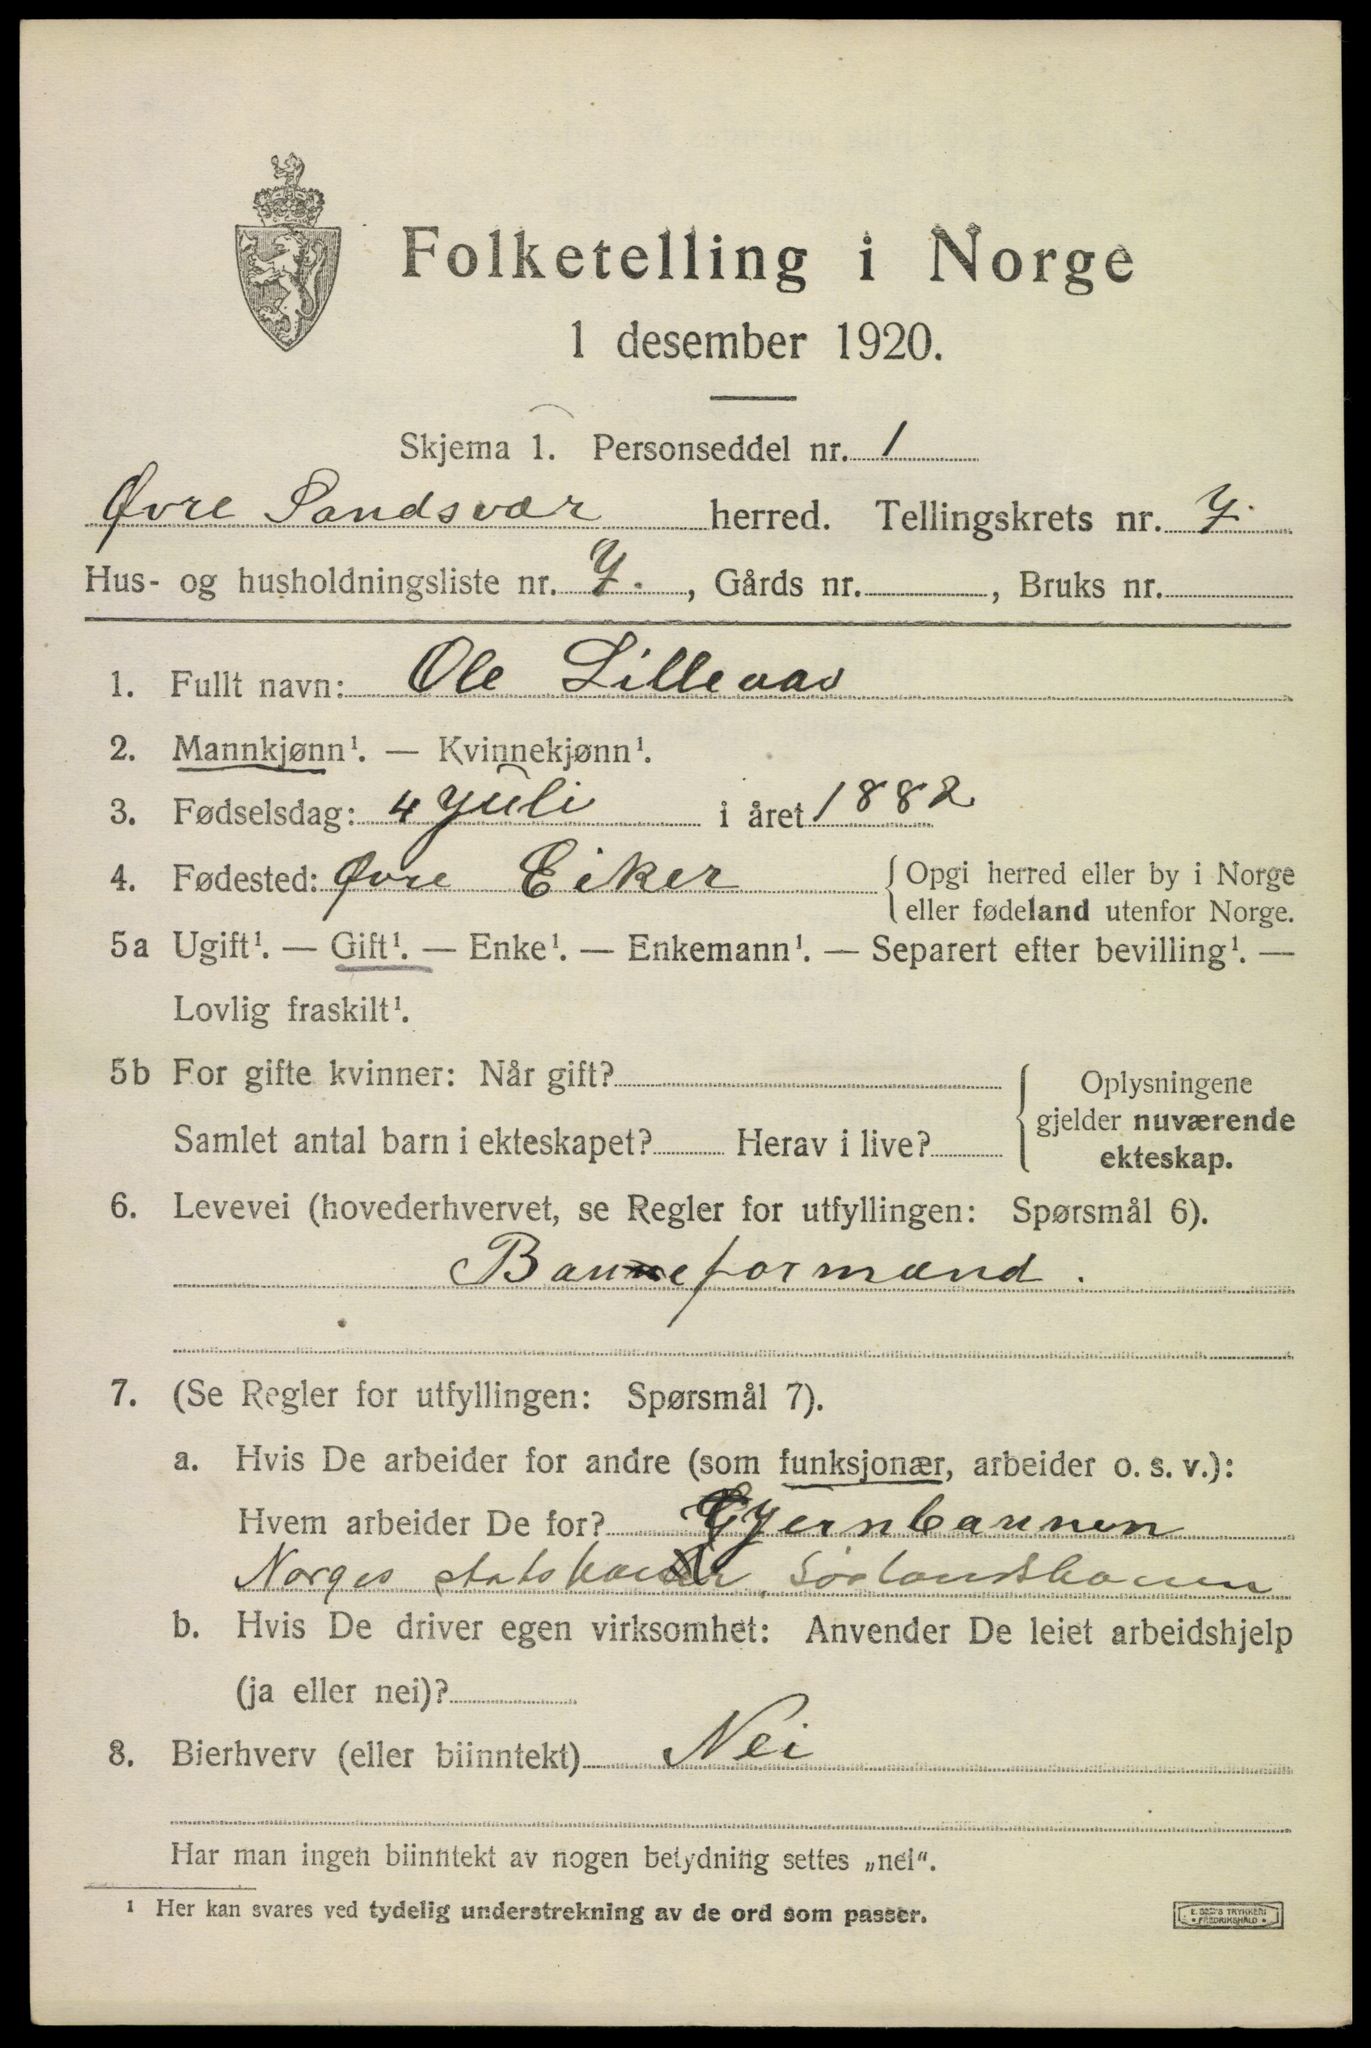 Folketelling i Norge
1 desember 1920.
Skjema 1. Personseddel nr. 1
Øvre Sandsvær herred. Tellingskrets nr. 7.
Hus- og husholdningsliste nr. 7., Gårds nr. , Bruks nr.
1. Fullt navn: Ole Lilleaas
2. Mannkjønn¹. — Kvinnekjønn¹.
3. Fødselsdag: 4 Juli i året 1882
4. Fødested: Øvre Eiker { Opgi herred eller by i Norge
eller fødeland utenfor Norge.
5a Ugift¹. — Gift¹. — Enke¹. — Enkemann¹. — Separert efter bevilling¹. —
Lovlig fraskilt¹.
5b For gifte kvinner: Når gift? { Oplysningene
gjelder nuværende
Samlet antal barn i ekteskapet? Herav i live?
ekteskap.
6. Levevei (hovederhvervet, se Regler for utfyllingen: Spørsmål 6).
Baneformand.
7. (Se Regler for utfyllingen: Spørsmål 7).
a. Hvis De arbeider for andre (som funksjonær, arbeider o. s. v.):
Hvem arbeider De for? Jernbannen
Norges Sørlandsbanen
b. Hvis De driver egen virksomhet: Anvender De leiet arbeidshjelp
(ja eller nei)?
8. Bierhverv (eller biinntekt) Nei
Har man ingen biinntekt av nogen betydning settes „nei“.
¹ Her kan svares ved tydelig understrekning av de ord som passer.
TRYKKERI
FREDRIKSHALD